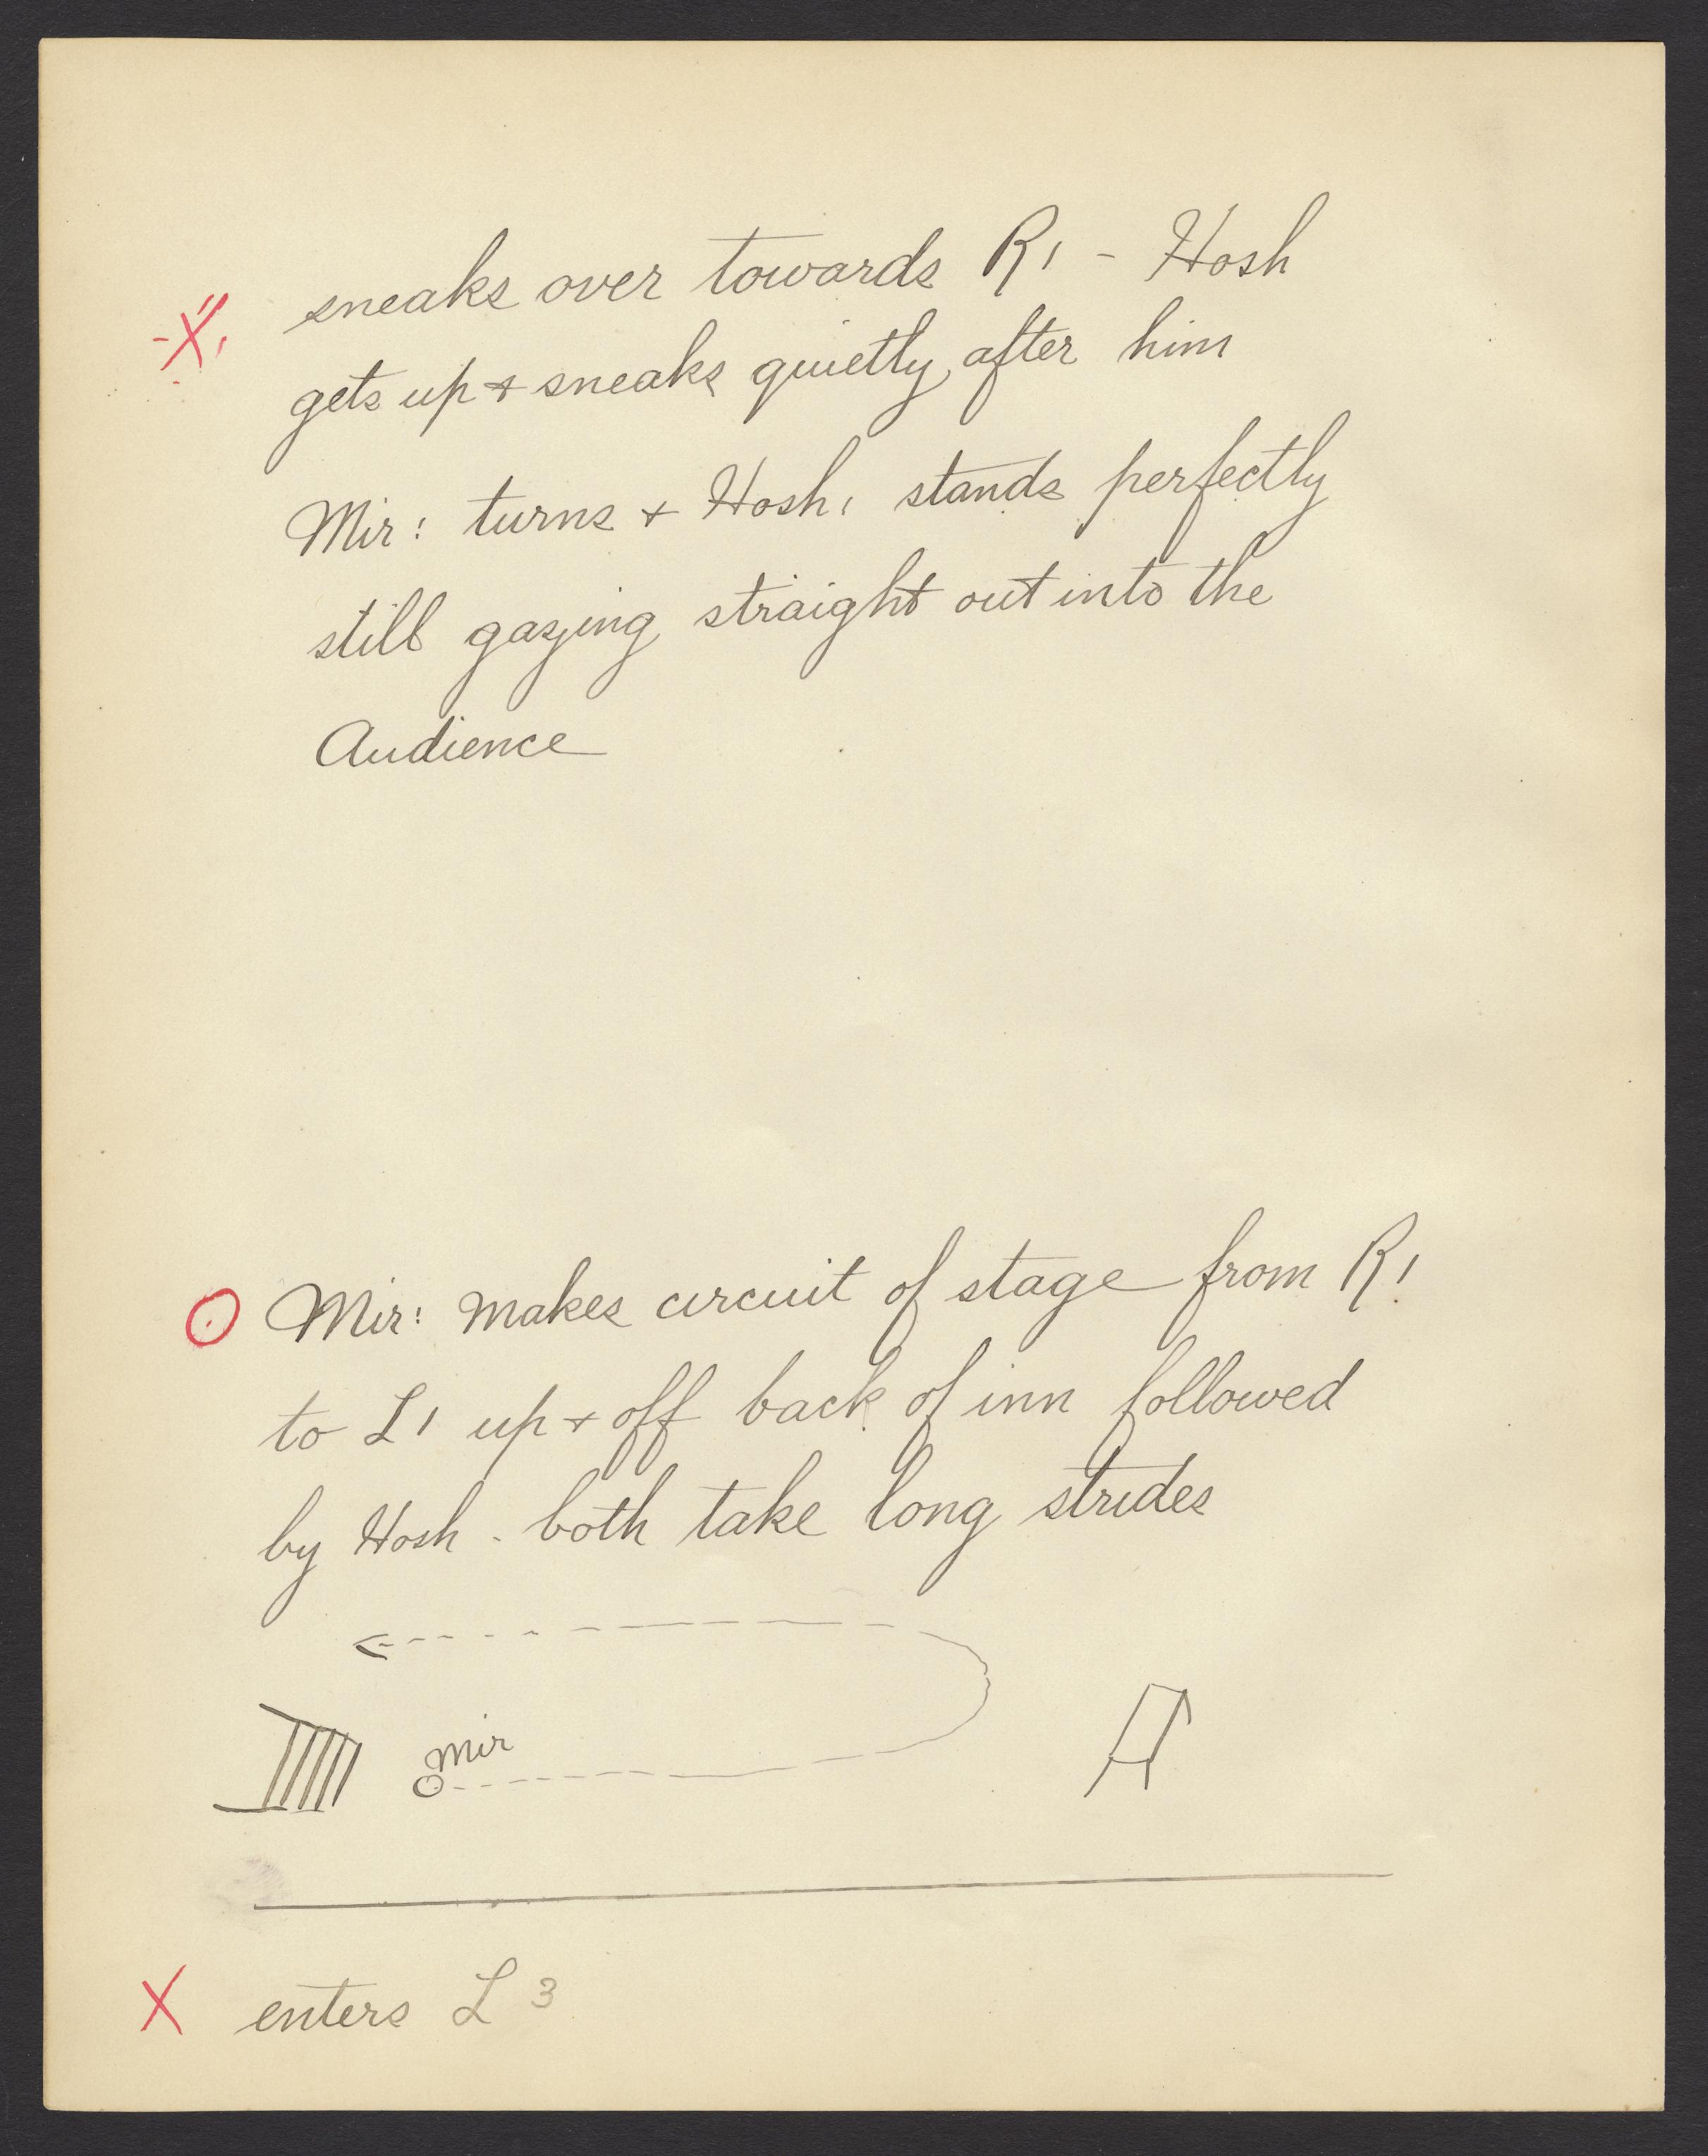 X sneaks over towards R1 - Hosh
gets up + sneaks quietly after him
Mir: turns + Hosh, stands perfectly
still gazing straight out into the
Audience
Mir: makes circuit of stage from R1
to L1 up + off back of inn followed
by Hosh - both take long strides
Mir
X enters L 3